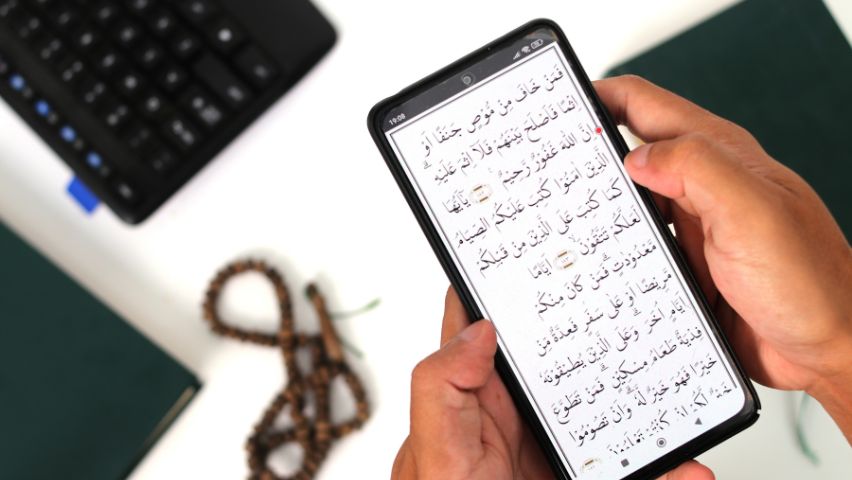 19:09
فَمَنْ خَافَ مِنْ مُّوْصٍ جَنَفًا اَوْ
اِثْمًا فَاَصْلَحَ بَيْنَهُمْ فَلَآ اِثْمَ عَلَيْهِ ۗ
اِنَّ اللّٰهَ غَفُوْرٌ رَّحِيْمٌ ١٨٢ يٰٓاَيُّهَا
الَّذِيْنَ اٰمَنُوْا كُتِبَ عَلَيْكُمُ الصِّيَامُ
كَمَا كُتِبَ عَلَى الَّذِيْنَ مِنْ قَبْلِكُمْ
لَعَلَّكُمْ تَتَّقُوْنَ ١٨٣ اَيَّامًا
مَّعْدُوْدٰتٍ ۗ فَمَنْ كَانَ مِنْكُمْ
مَّرِيْضًا اَوْ عَلٰى سَفَرٍ فَعِدَّةٌ مِّنْ
اَيَّامٍ اُخَرَ ۗ وَعَلَى الَّذِيْنَ يُطِيْقُوْنَهٗ
فِدْيَةٌ طَعَامُ مِسْكِيْنٍ ۗ فَمَنْ تَطَوَّعَ
خَيْرًا فَهُوَ خَيْرٌ لَّهٗ ۗ وَاَنْ تَصُوْمُوْا
خَيْرٌ لَّكُمْ اِنْ كُنْتُمْ تَعْلَمُوْنَ